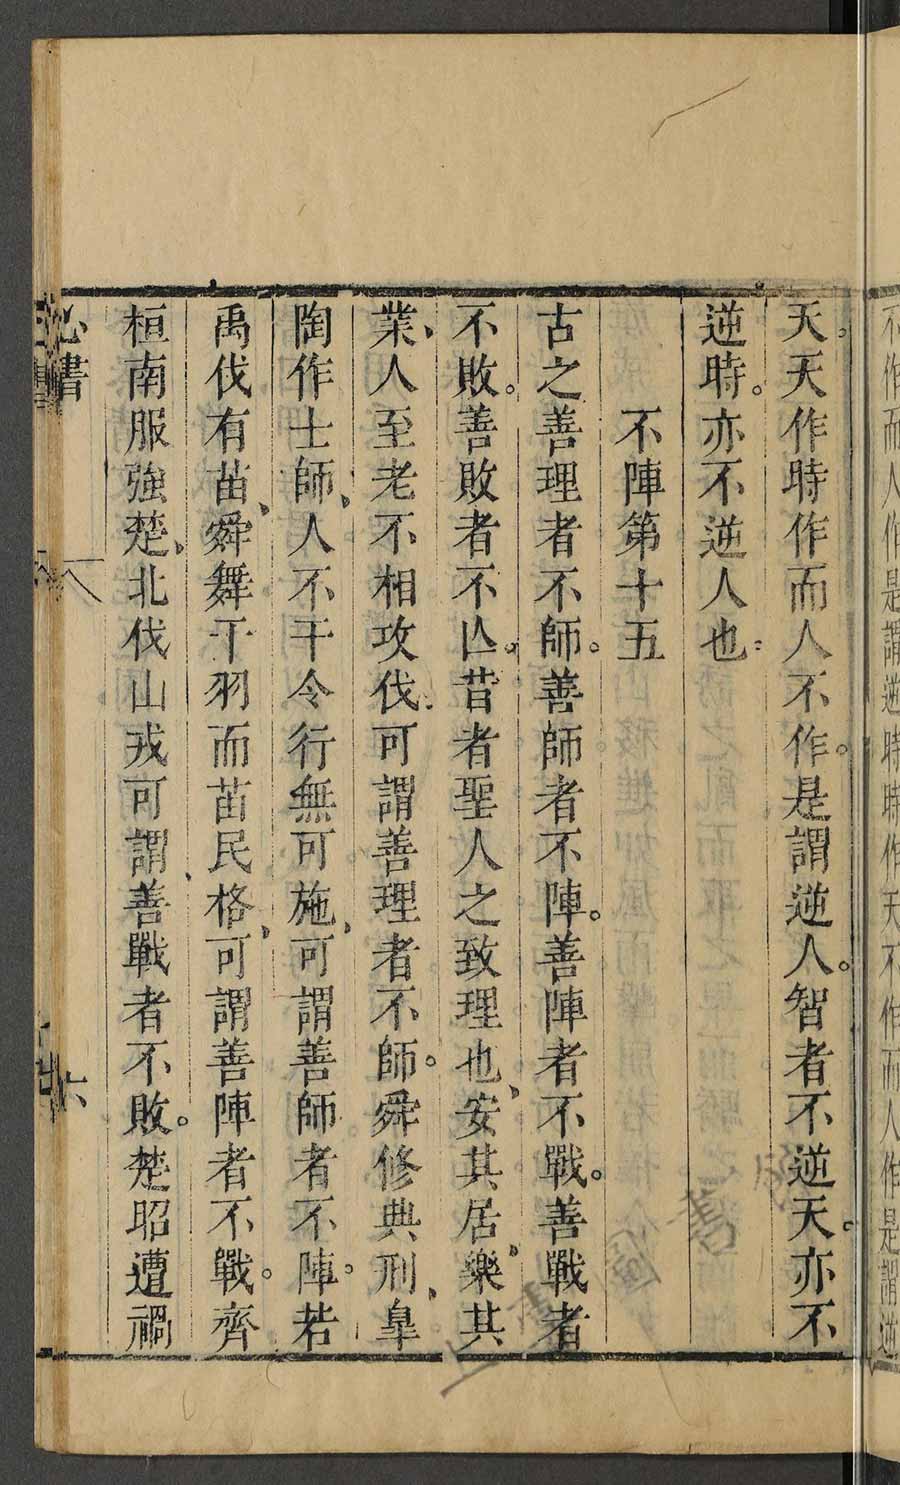 不作而人作是謂逆時時作天不作而人作是謂逆
天。天作時作而人不作。是謂逆人。智者不逆天。亦不
逆時。亦不逆人也。
不陣第十五
古之善理者不師。善師者不陣。善陣者不戰。善戰者
不敗。善敗者不亾。昔者聖人之致理也、安其居、樂其
業、人至老不相攻伐。可謂善理者不師。舜修典刑、臯
陶作士師、人不干令行無可施、可謂善師者不陣。若
禹伐有苗、舜舞干羽而苗民格、可謂善陣者不戰。齊
桓南服強楚、北伐山戎可謂、善戰者不敗。楚昭遭禍
心書
六